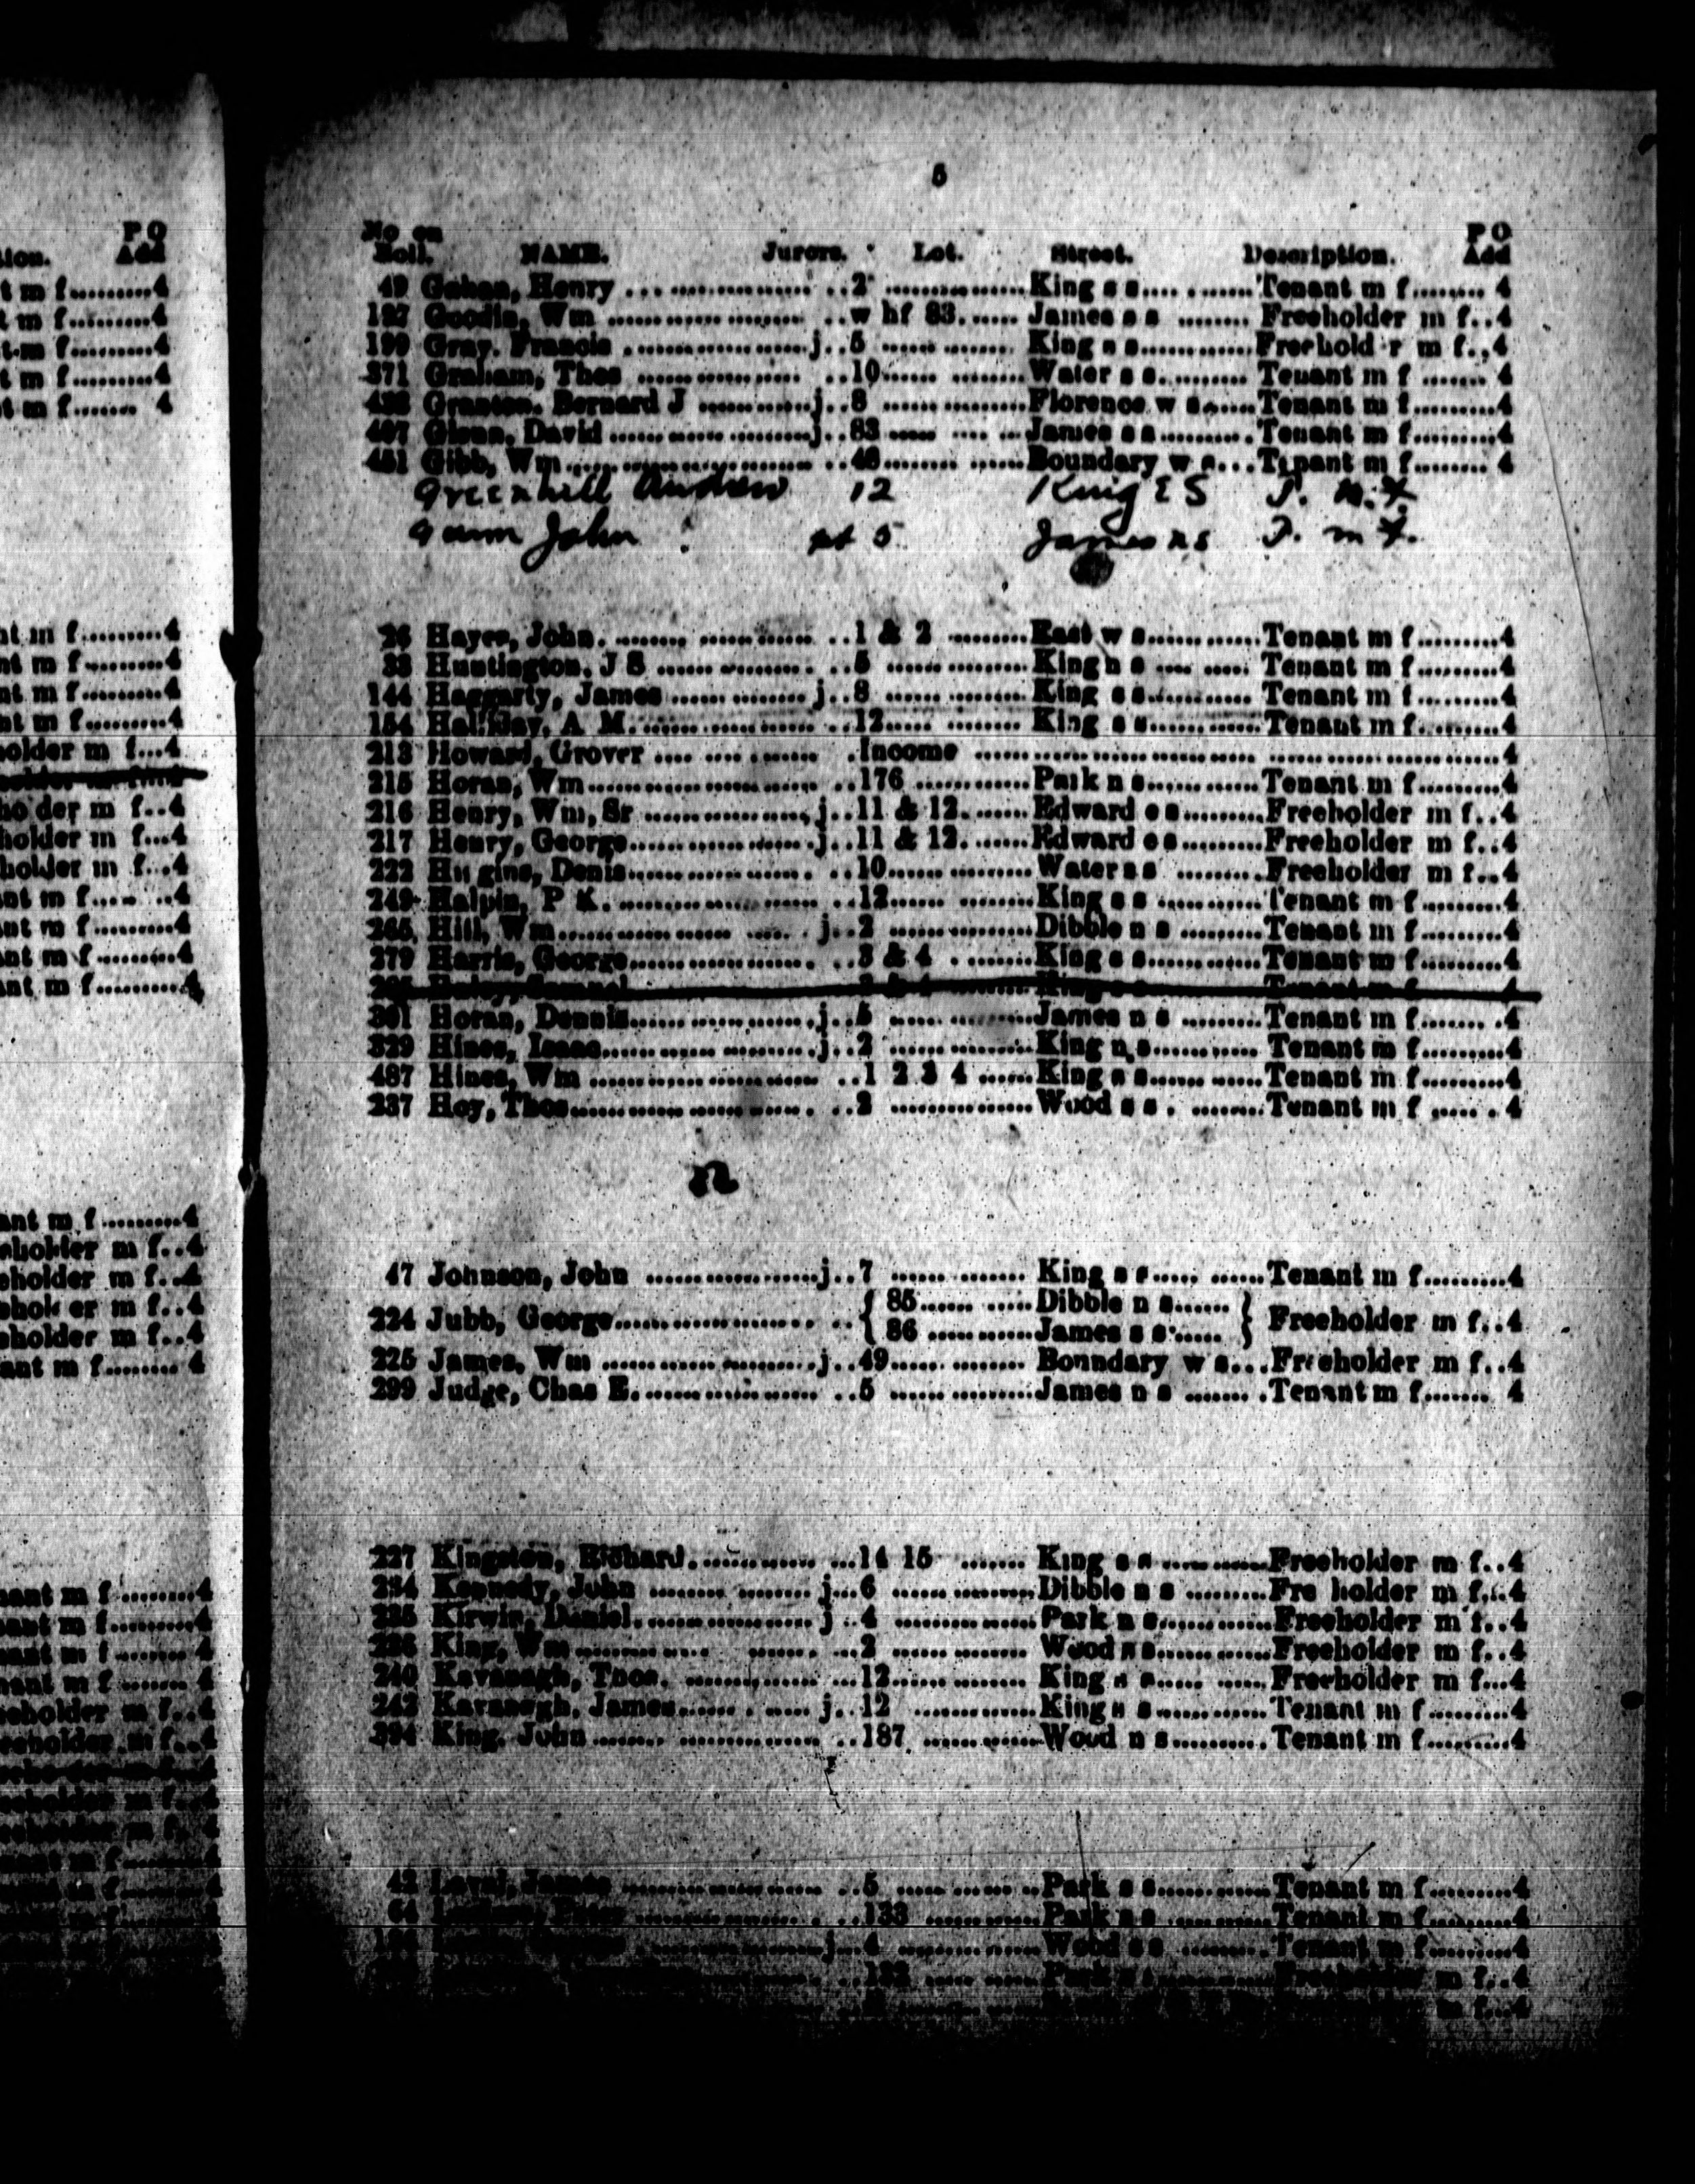 P O
tion. Add
t m f.........4
t m f.........4
t m f.........4
t m f.........4
t m f....... 4
nt m f.........4
nt m f.........4
nt m f.........4
nt m f.........4
holder m f...4
ho der m f..4
holder m f...4
holder m f...4
ant m f..... ..4
ant m f.........4
ant m f.........4
ant m f..........4
ant m f.........4
eholder m f..4
eholder m f..4
ehol er m f..4
eholder m f..4
ant m f........ 4
nant m f .........4
nant m f..........4
nant m f .........4
nant m f ....... 4
eeholder m f..4
eeholder m f...4
5
No on P O
Roll. NAME. Jurors. Lot. Street. Description. Add
49 Gahan, Henry .. 2 King s s Tenant m f 4
127 Goodin, Wm .. w hf 83. James s s Freeholder m f..4
199 Gray. Francis j..5 King s s Freehold r m f..4
371 Graham, Thos ..10 Water s s Tenant m f 4
Bernard J j..8 Florence w s Tenant m f 4
497 Glenn, David j..83 James s s Tenant m f 4
451 Gibb, Wm ..48 Boundary w s Tenant m f 4
Greenhill Andrew 12 King E S T. M. F.
Gunn John pt 5 James n s T. m F.
26 Hayes, John ..1 & 2 East w s Tenant m f 4
33 Huntington. J S ..5 King n s Tenant m f 4
144 Haggarty, James j..8 King s s Tenant m f 4
154 Halliday, A M. ..12 King s s Tenant m f 4
213 Howard, Grover .Income 4
215 Horan, Wm ..176 Park n s Tenant m f 4
216 Henry, Wm, Sr j..11 & 12. Edward e s Freeholder m f..4
217 Henry, George j..11 & 12. Edward e s Freeholder m f..4
222 Hu gins, Denis ..10 Water s s Freeholder m f..4
249 Halpin, P K. ..12 King s s Tenant m f 4
265 Hill, Wm j..2 Dibble n s Tenant m f 4
279 Harris, George ..3 & 4 King s s Tenant m f 4
301 Horan, Dennis j..5 James n s Tenant m f 4
329 Hines, Isaac j..2 King n s Tenant m f 4
487 Hines, Wm ..1 2 3 4 King s s Tenant m f 4
337 Hoy, Thos ..2 Wood s s Tenant m f 4
47 Johnson, John j..7 King s s Tenant m f 4
224 Jubb, George { 85 Dibble n s } Freeholder m f..4
{ 86 James s s }
225 James, Wm j..49 Bonndary w s Freeholder m f..4
299 Judge, Chas E. ..5 James n s Tenant m f 4
227 Kingston, Richard. ...14 15 King s s Freeholder m f..4
234 Kennedy, John j...6 Dibble n s Fre holder m f..4
235 Kirwin, Daniel. j..4 Park n s Freeholder m f..4
236 King, Wm ...2 Wood n s Freeholder m f..4
240 Kavanagh, Thos. ...12 King s s Freeholder m f...4
242 Kavanagh, James j..12 King s s Tenant m f 4
394 King, John ..187 Wood n s Tenant m f 4
42 James ..5 Park s s Tenant m f 4
64 Peter ..133 Park s s Tenant m f 4
j...4 Wood s s Tenant m f 4
Park m f..4
m f...4